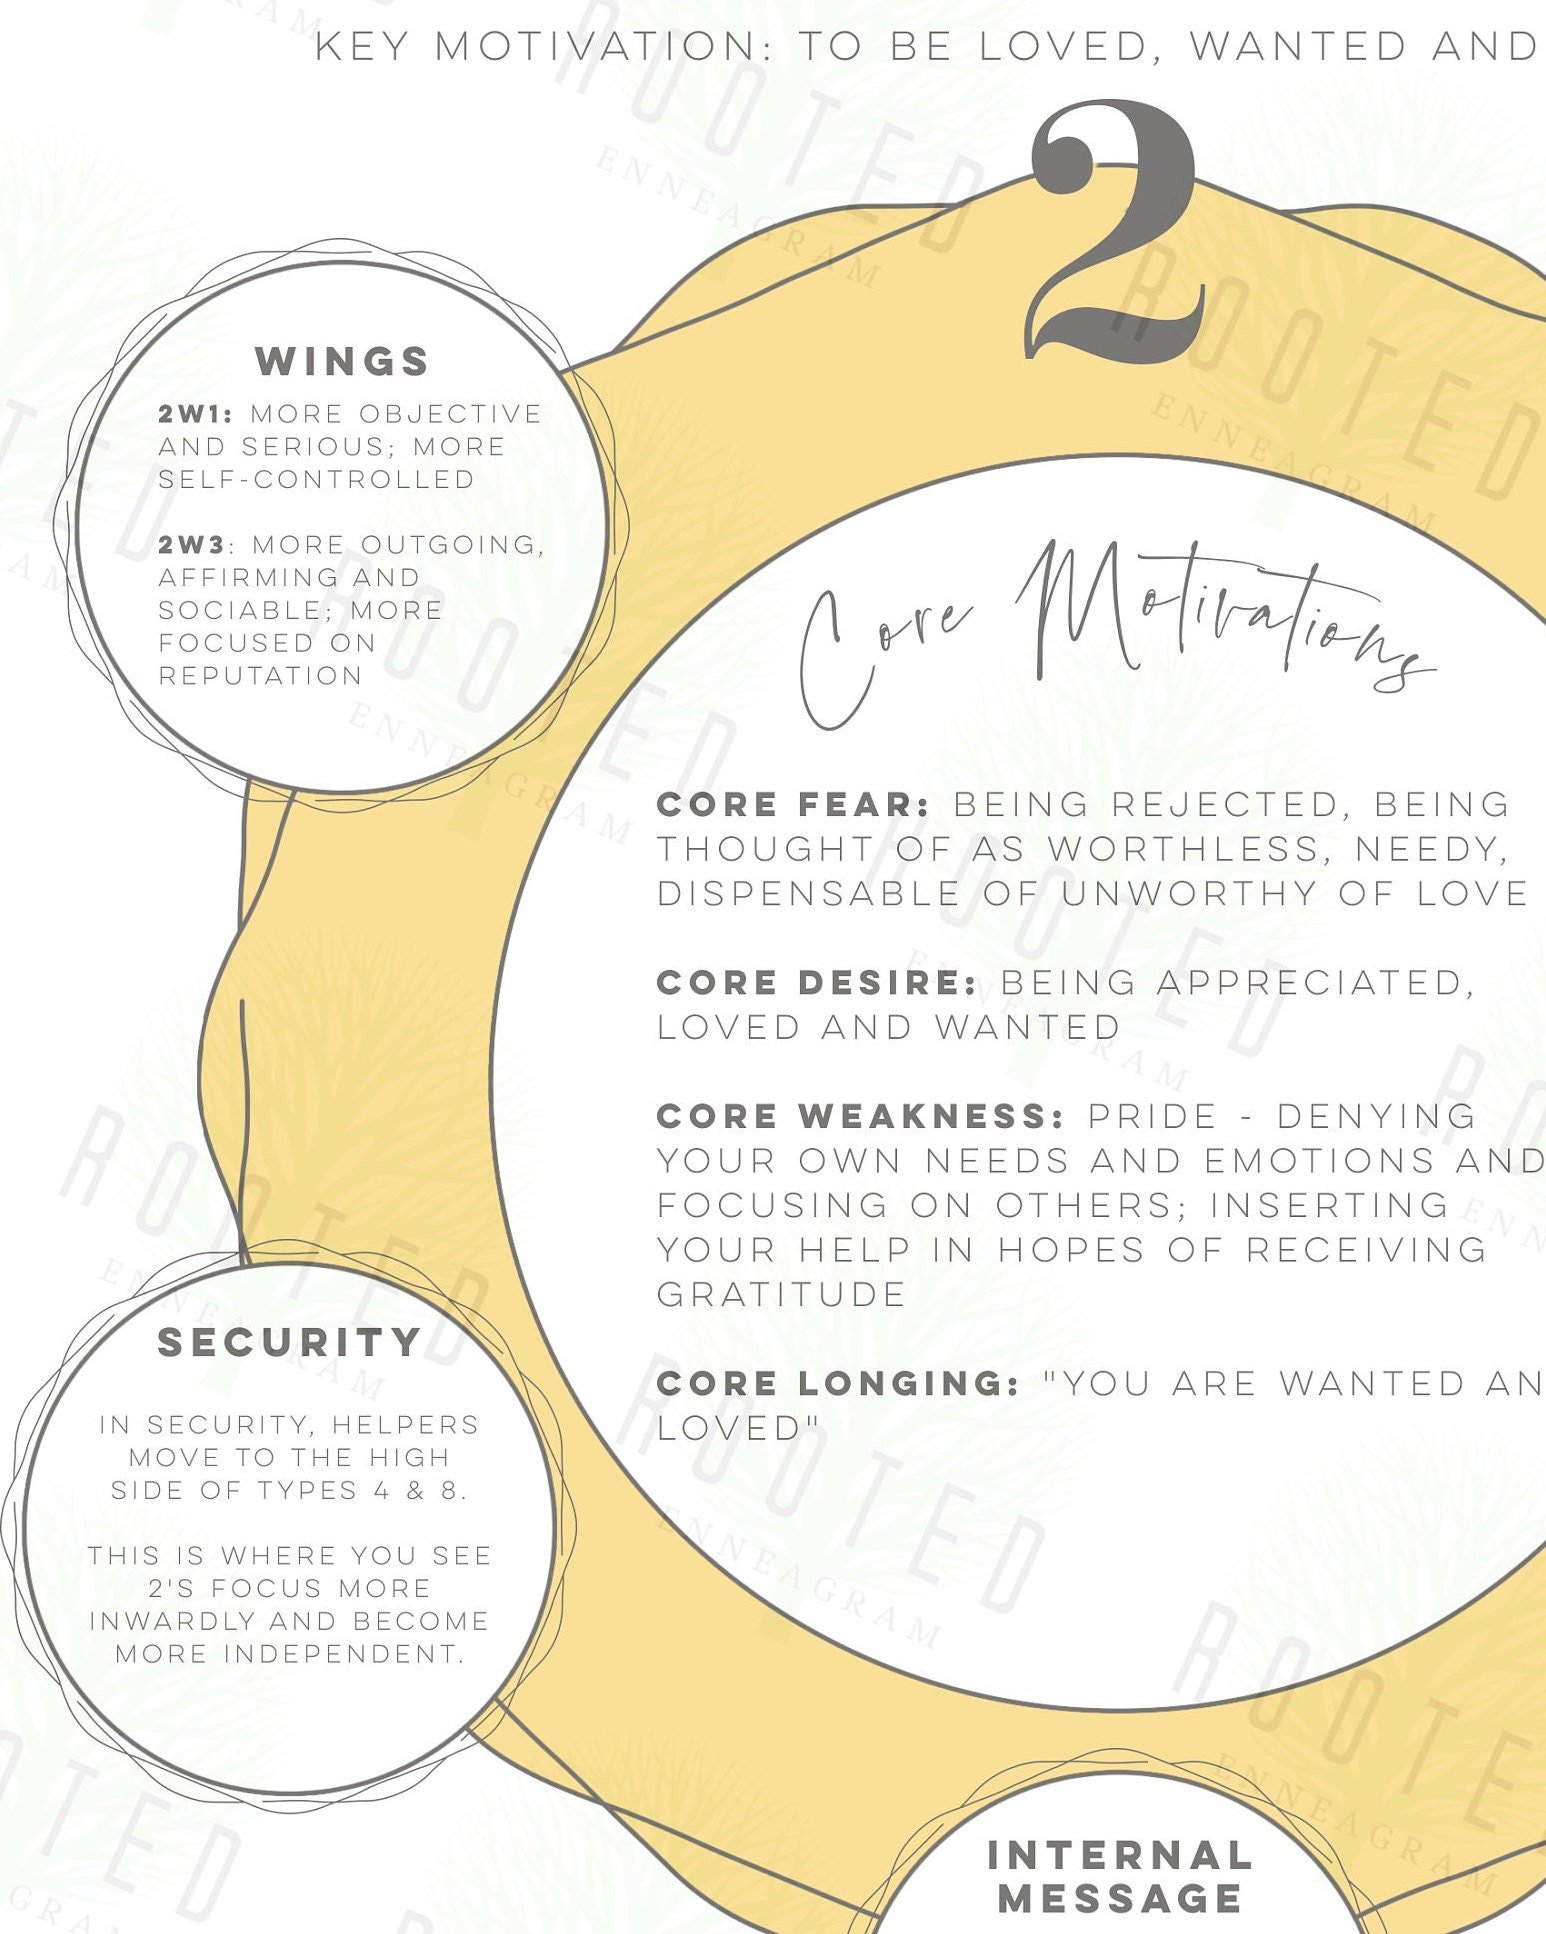 KEY MOTIVATION: TO BE LOVED, WANTED AND
2
WINGS
2W1: MORE OBJECTIVE
AND SERIOUS; MORE
SELF-CONTROLLED
2W3: MORE OUTGOING,
AFFIRMING AND
SOCIABLE; MORE
FOCUSED ON
REPUTATION
Core Motivations
CORE FEAR: BEING REJECTED, BEING
THOUGHT OF AS WORTHLESS, NEEDY,
DISPENSABLE OF UNWORTHY OF LOVE
CORE DESIRE: BEING APPRECIATED,
LOVED AND WANTED
CORE WEAKNESS: PRIDE - DENYING
YOUR OWN NEEDS AND EMOTIONS AND
FOCUSING ON OTHERS; INSERTING
YOUR HELP IN HOPES OF RECEIVING
GRATITUDE
CORE LONGING: "YOU ARE WANTED AN
LOVED"
SECURITY
IN SECURITY, HELPERS
MOVE TO THE HIGH
SIDE OF TYPES 4 & 8.
THIS IS WHERE YOU SEE
2'S FOCUS MORE
INWARDLY AND BECOME
MORE INDEPENDENT.
INTERNAL
MESSAGE
ROOTED
ENNEAGRAM
ROOTED
ENNEAGRAM
ROOTED
ENNEAGRAM
ROOTED
ENNEAGRAM
ROOTED
ENNEAGRAM
ROOTED
ENNEAGRAM
ROOTED
ENNEAGRAM